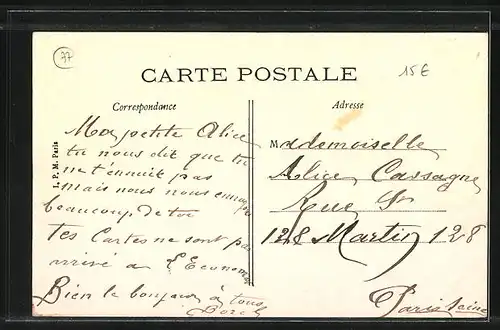 77
15€
CARTE POSTALE
Correspondance
Adresse
I. P. M. Paris
Ma petite Alice
tu nous dit que tu
ne t'ennuit pas
mais nous nous ennuyon
beaucoup de toi
tes Cartes ne sont pas
arrivé a l'Econom
Bien le bonjour à tous
Mademoiselle
Alice Cassagne
Rue St
128 Martin 128
Paris Seine